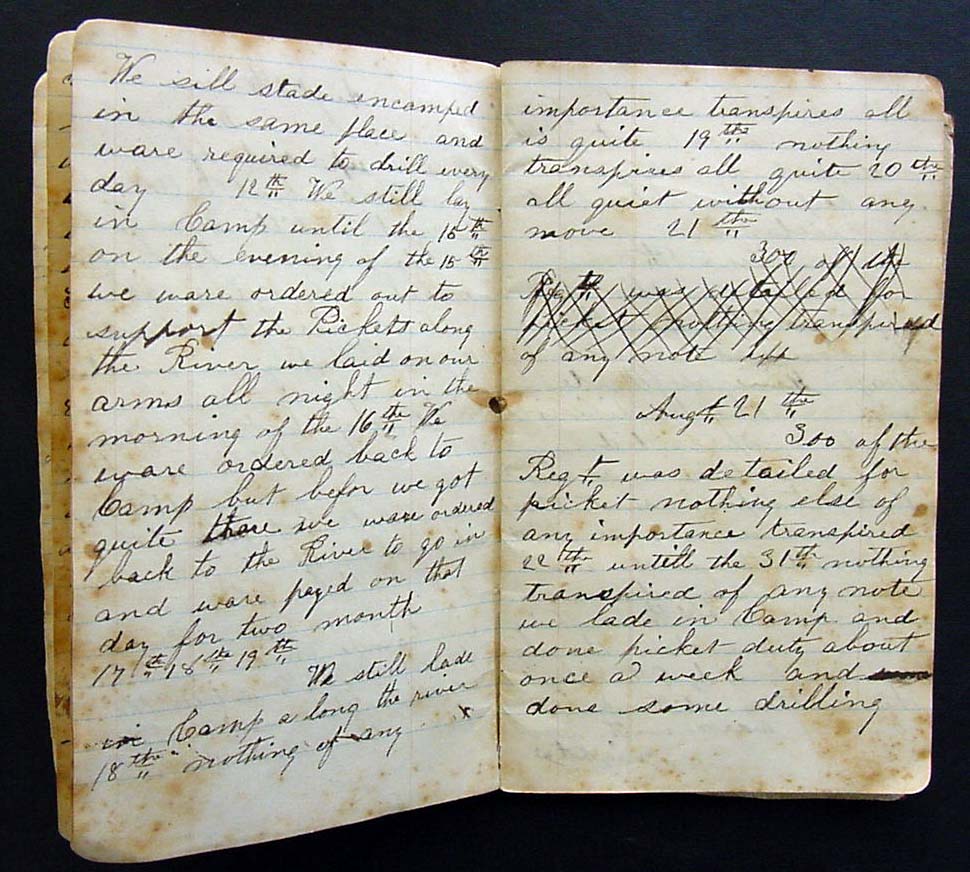 We sill stade encamped
in the same place and
ware required to drill every
day 12th We still lay
in Camp until the 15th
on the evening of the 15th
we ware ordered out to
support the Picketts along
the River we laid on our
arms all night in the
morning of the 16th We
ware ordered back to
Camp but befor we got
quite thare we ware ordered
back to the River to go in
and ware payed on that
day for two month
17th 18th 19th
We still lade
in Camp a long the river
18th nothing of any
importance transpires all
is quite 19th nothing
transpires all quite 20th
all quiet without any
move 21th
300 of the
Regt was detailed for
picket nothing transpired
of any note
Augt 21th
300 of the
Regt was detailed for
picket nothing else of
any importance transpired
22th untill the 31th nothing
transpired of any note
we lade in Camp and
done picket duty about
once a week and
done some drilling